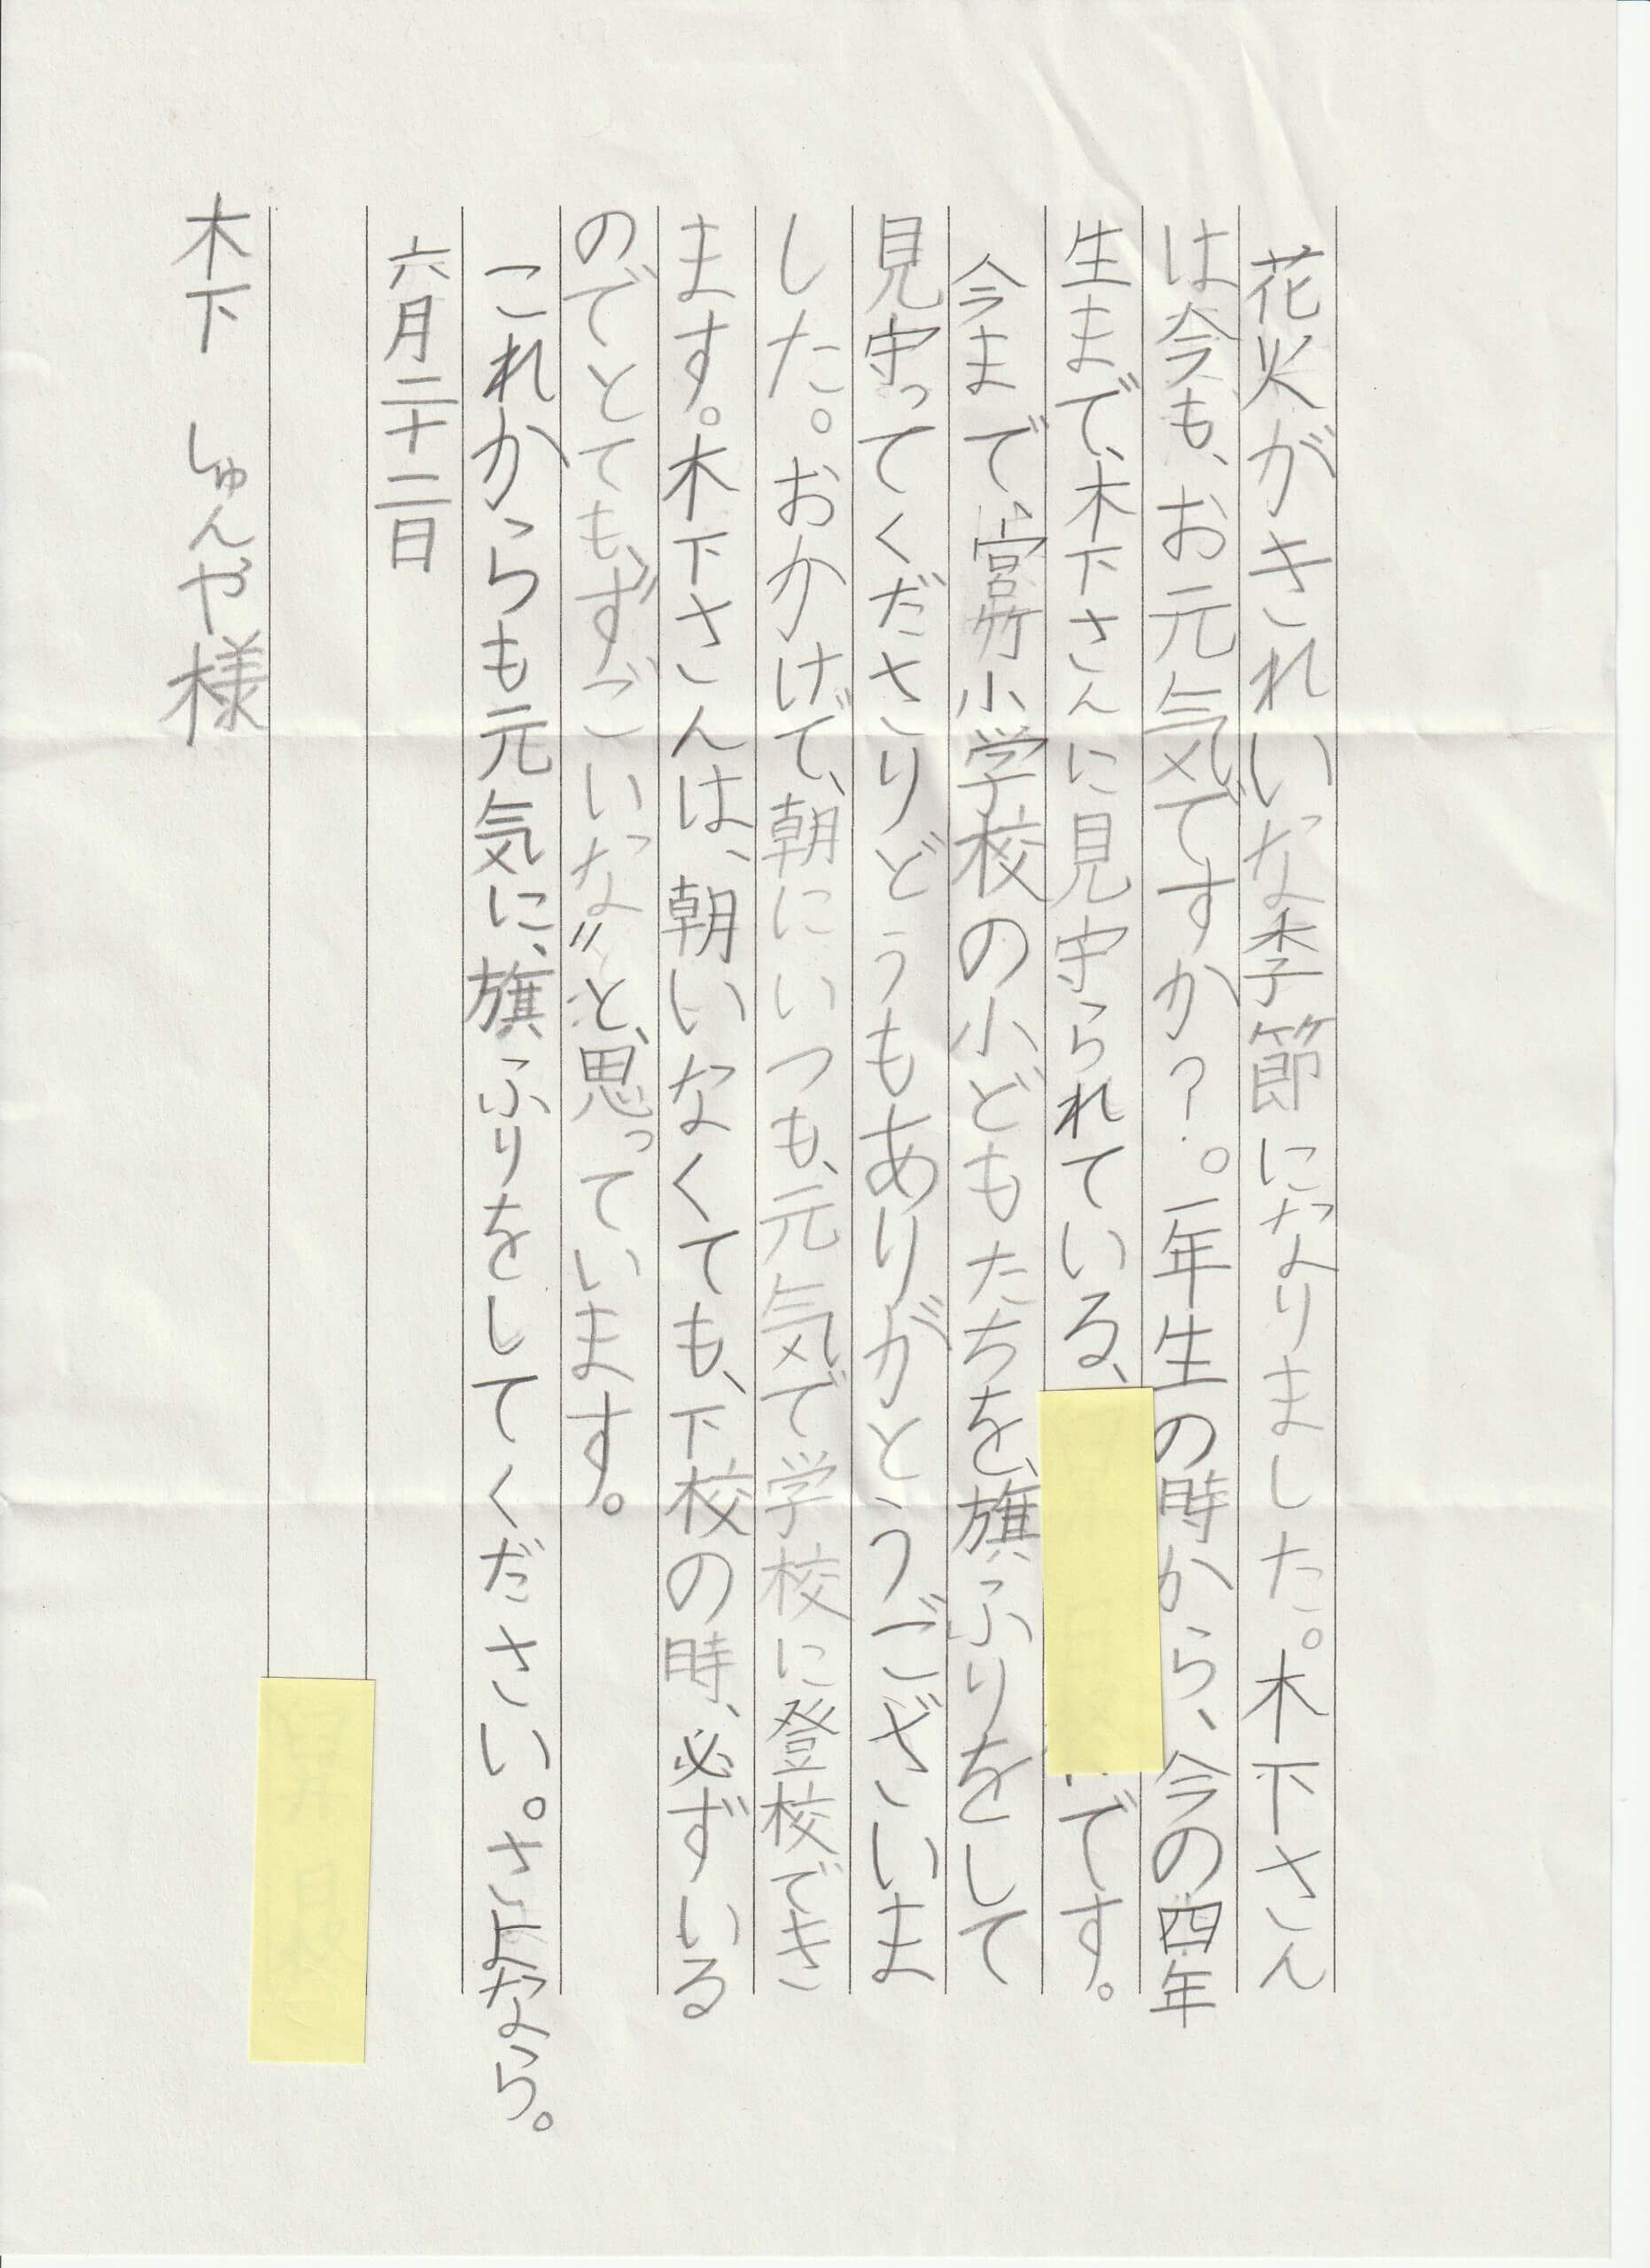 花火がきれいな季節になりました。木下さん
は今も、お元気ですか?。一年生の時から、今の四年
生まで、木下さんに見守られている、
です。
今まで、富竹小学校の小どもたちを、旗ふりをして
見守ってくださりどうもありがとうございま
した。おかげで、朝にいつも、元気で学校に登校でき
ます。木下さんは、朝いなくても、下校の時、必ずいる
のでとても、〝すごいな〟と、思っています。
これからも元気に、旗ふりをしてください。さよなら。
六月二十二日
木下 しゅんや様